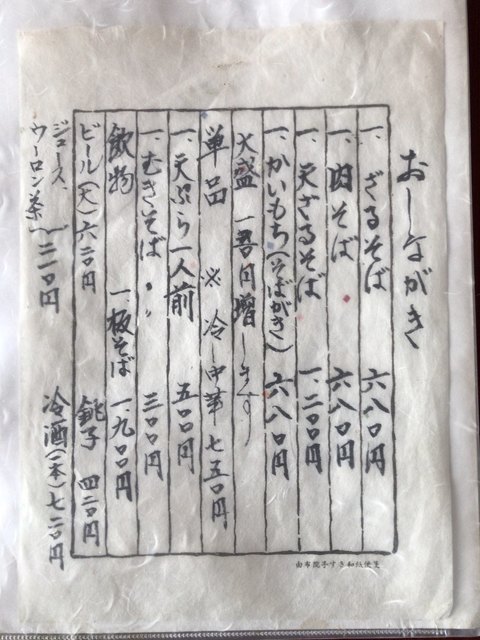 おしながき
一、ざるそば 六八〇円
一、肉そば 六八〇円
一、天ざるそば 一、二〇〇円
一、かいもち(そばがき) 六八〇円
大盛 一五〇円増します
単品 ※冷し中華 七五〇円
一、天ぷら一人前 五〇〇円
一、むきそば 三〇〇円
飲物 一、板そば 一、九〇〇円
ビール(大)六二〇円 銚子 四二〇円
ジュース、ウーロン茶 二一〇円 冷酒(一本)七二〇円
由布院手すき和紙便箋